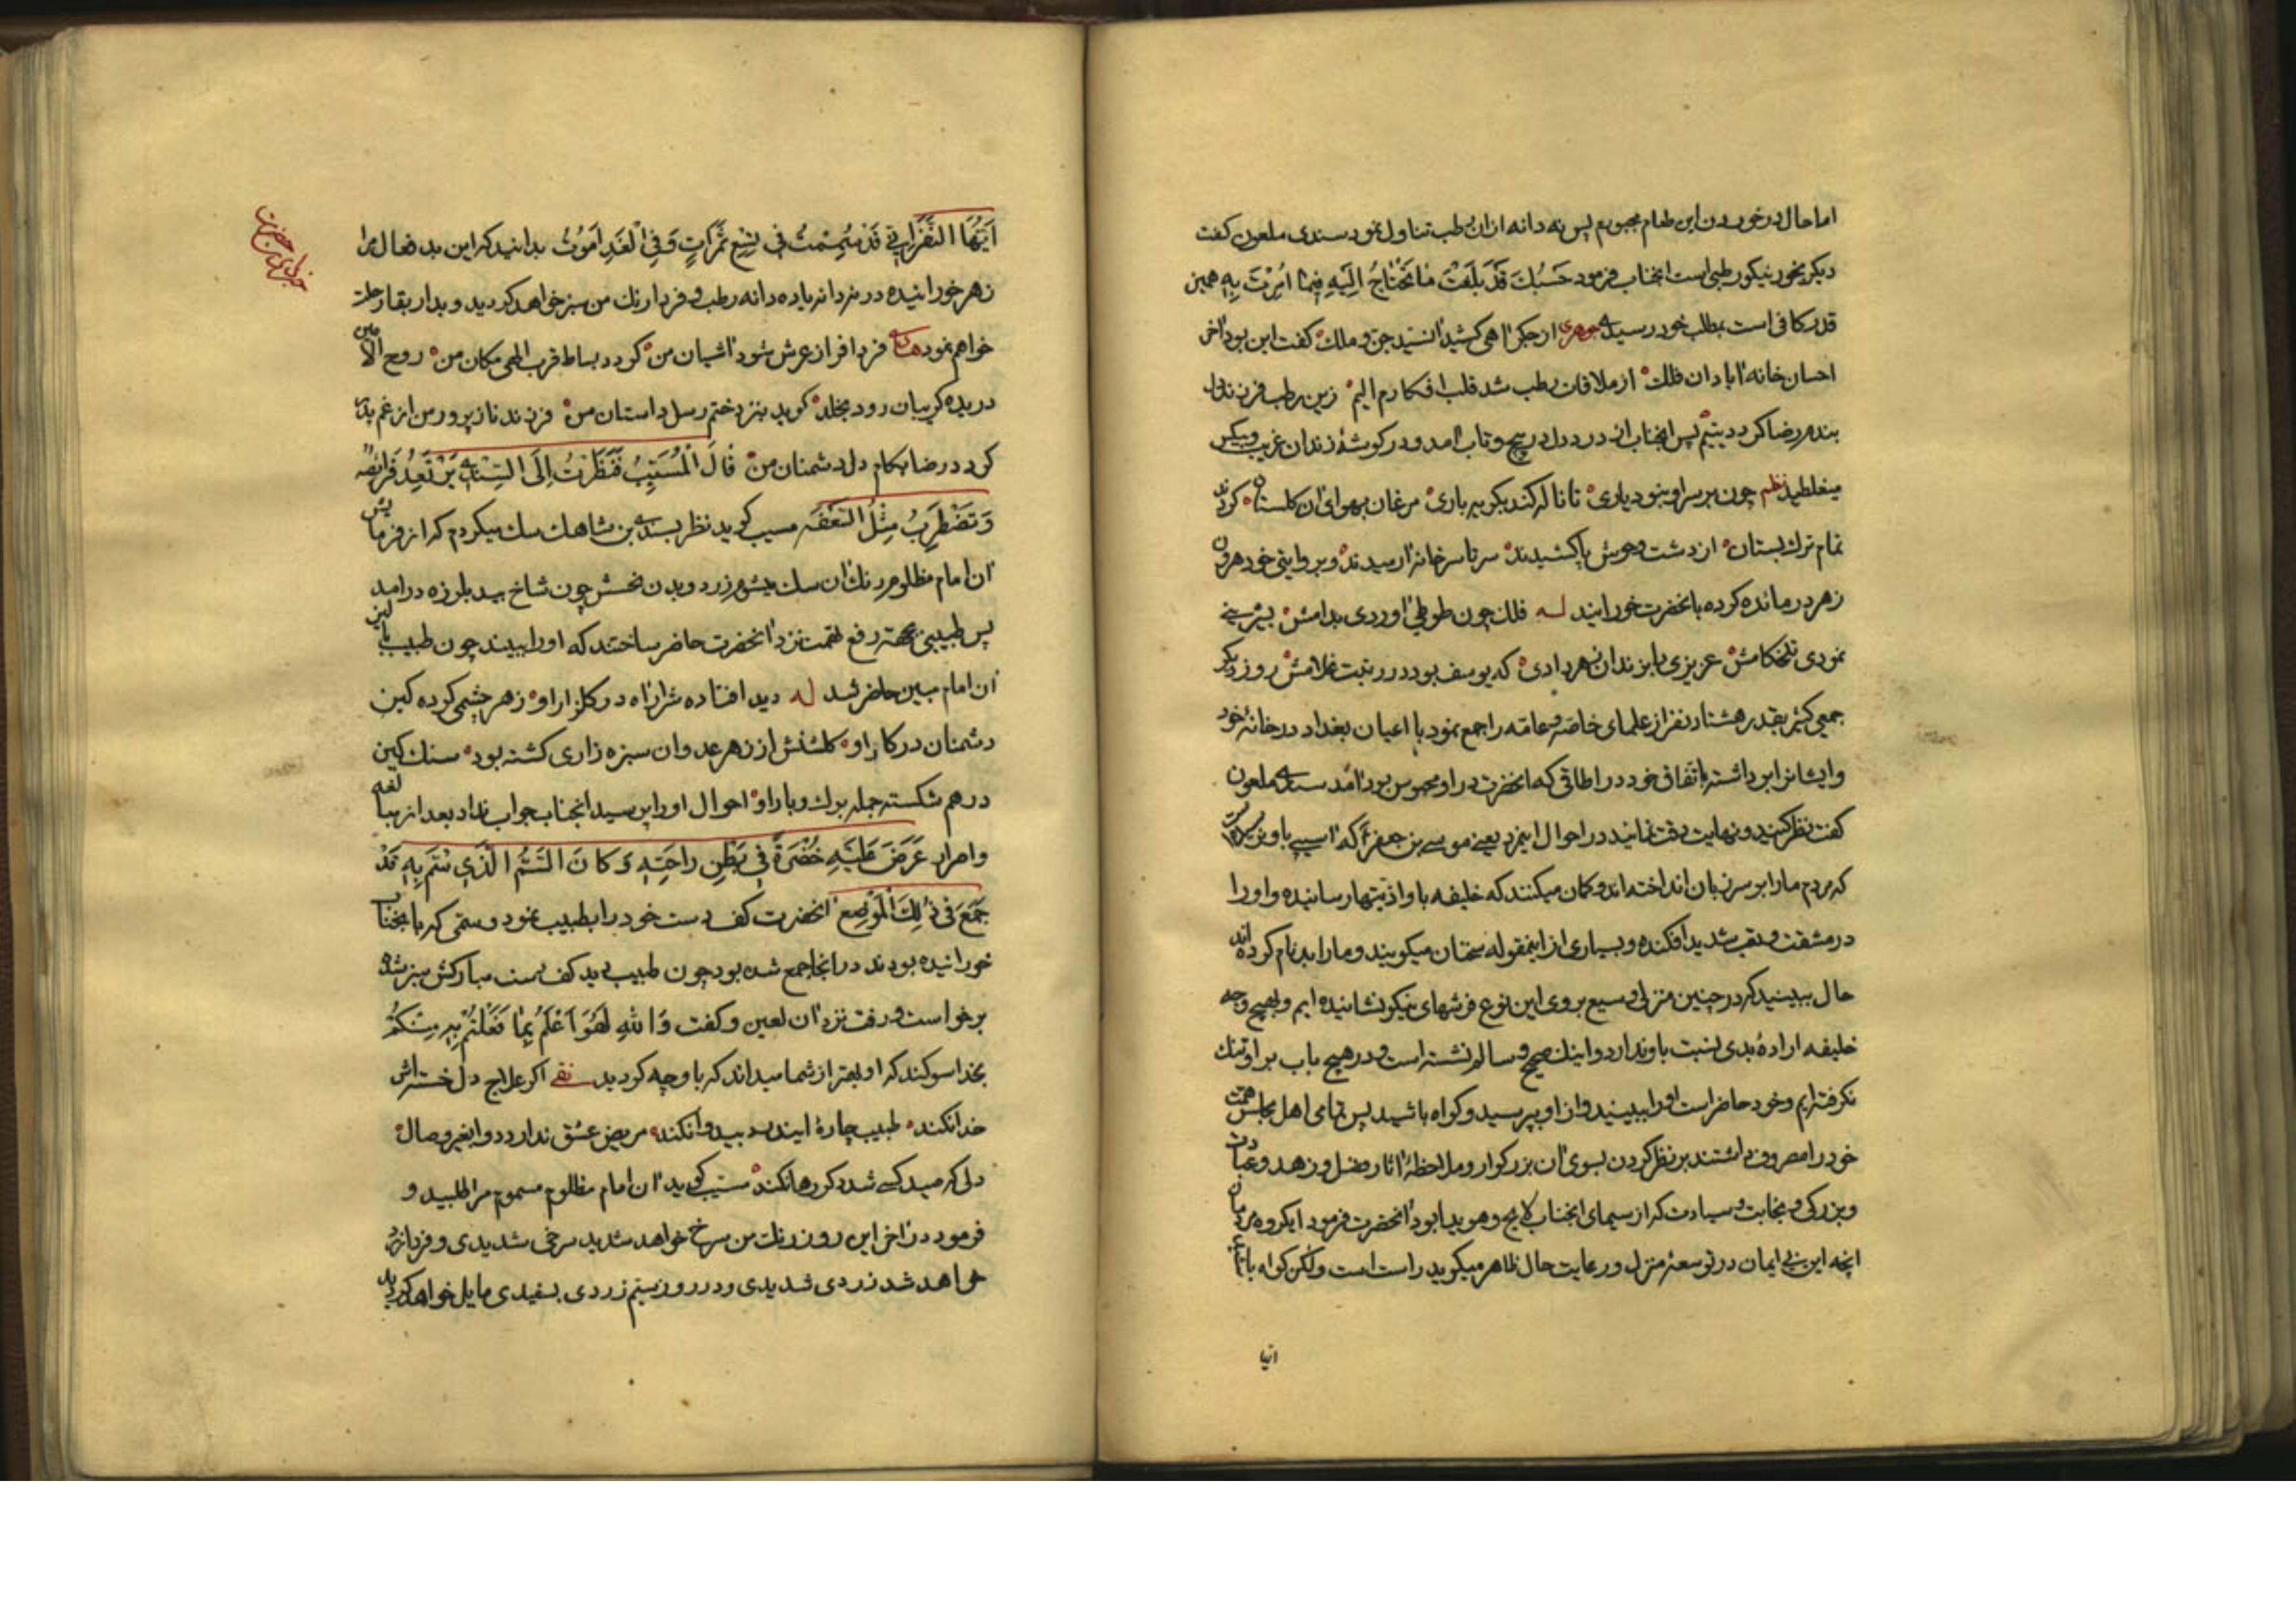 اما حال در خوردن این طعام مجبورم پس نه دانه از آن رطب تناول نمود سندی ملعون کفت
دیکر بخور نیکو رطبی است انجناب فرمود حَسْبُكَ قَدْ بَلَغْتَ مٰا تَحْتٰاجُ اِلَیْهِ فِیمٰا اُمِرْتَ بِهِ همین
قدر کافی است بمطلب خود رسیدی جوهری از جکر اهی کشید انسید جن و ملك کفت این بود اخر
احسان خانه ابادان فلك از ملاقات رطب شد قلب افکارم الیم زین رطب فرزند دل
بندم رضا کردد یتیم پس انجناب از درد دل در پیچ و تاب امد و در کوشهٔ زندان غریب و بیکس
میغلطید نظم چون بر سر او نبود یاری تا ناله کند بکریه باری مرغان بهوای ان کلستان کردند
تمام ترك بستان از دشت وحوش پا کشیدند سر تا سر خانه ارمیدند و بروایتی خود هرون
زهر در مانده کرده بانحضرت خورانید له فلك چون طوطی اوردی بدامش بشیرینی
نمودی تلخ کامش عزیزی را بزندان زهر دادی که یوسف بود در رتبت غلامش روز دیکر
جمعی کثیر بقدر هشتاد نفر از علمای خاصه و عامه را جمع نمود با اعیان بغداد در خانهٔ خود
و ایشانرا برداشته باتفاق خود در اطاقی که انحضرت در او محبوس بود امد سندی ملعون
کفت نظر کنید و نهایت دقت نمایند در احوال اینمرد یعنی موسی بن جعفر که اسیبی باو نرسیده است
که مردم ما را بر سر زبان انداخته اند و کمان میکنند که خلیفه باو اذیتها رسانیده و او را
در مشقت و تعب شدید افکنده و بسیاری از اینمقوله سخنان میکویند و ما را بدنام کرده اند
حال ببینید که در چنین منزلی وسیع بر روی این نوع فرشهای نیکو نشانیده ایم و بهیچ وجه
خلیفه ارادهٔ بدی نسبت باو ندارد و اینك صحیح و سالم نشسته است و در هیچ باب بر او تنك
نکرفته ایم و خود حاضر است او را ببینید و از او بپرسید و کواه باشید پس تمامی اهل مجلس همت
خود را مصروف داشتند بر نظر کردن بسوی ان بزرکوار و ملاحظهٔ اثار فضل و زهد و عبادت
و بزرکی و نجابت و سیادت که از سیمای انجناب لایح و هویدا بود انحضرت فرمود ایکروه مردمان
انچه این بی ایمان در توسعهٔ منزل و رعایت حال ظاهر میکوید راست است ولکن کواه باشید
ایها
اَیُّهَا النَّفَرُ اِنّی قَدْ سُمِمْتُ فی تِسْعِ تَمَرٰاتٍ وَفِی الْغَدِ اَمُوتُ بدانید که این بد فعال مرا
زهر خورانیده در نه دانه یا ده دانه رطب و فردا رنك من سبز خواهد کردید و بدار بقا رحلت
خواهم نمود فردا فراز عرش شود اشیان من کردد بساط قرب الهی مکان من روح الامین
دریده کریبان رود بخلد کوید بنزد ختم رسل داستان من فرزند ناز پرور من از غم پدر
کردد رضا بکام دل دشمنان من قٰالَ الْمُسَیِّبُ فَنَظَرْتُ اِلَی السِّنْدِیِّ یَرْتَعِدُ فَرٰائِصُهُ
وَتَضْطَرِبُ مِثْلَ السَّعْفَةِ مسیب کوید نظر بسندی بن شاهك سك میکردم که از فرمایش
ان امام مظلوم رنك ان سك بیشرم زرد و بدن نحسش چون شاخ بید بلرزه درامد
پس طبیبی بجهة رفع تهمت نزد انحضرت حاضر ساختند که او را ببیند چون طبیب ببالین
ان امام مبین حاضر شد له دید افتاده شرار اه در کلزار او زهر چشمی کرده کین
دشمنان در کار او کلشنش از زهر عدوان سبزه زاری کشته بود سنك کین
در هم شکسته جمله برك و بار او احوال او را پرسید انجناب جواب نداد بعد از مبالغه
و اصرار عَرَضَ عَلَیْهِ خُضْرَةً فی بَطْنِ رٰاحَتِهِ وَ کٰانَ السَّمُّ الَّذی سُمَّ بِهِ قَدْ
جَمَعَ فی ذٰلِكَ الْمَوْضِعِ انحضرت کف دست خود را بطبیب نمود و سمی که بانجناب
خورانیده بودند در انجا جمع شده بود چون طبیب دید کف دست مبارکش سبز شده
برخواست و رفت نزد ان لعین و کفت وَاللهِ لَهُوَ اَعْلَمُ بِمٰا فَعَلْتُمْ بِهِ مِنْکُمْ
بخدا سوکند که او بهتر از شما میداند که باو چه کردید اکر علاج دل خسته اش
خدا نکند طبیب چارهٔ این درد بیدوا نکند مریض عشق ندارد دوا بغیر وصال
دلی که صید کسی شد دکر رها نکند مسیب کوید ان امام مظلوم مسموم مرا طلبید و
فرمود در اخر این روز رنك من سرخ خواهد شد بسرخی شدیدی و فردا زرد
خواهد شد زردی شدیدی و در روز سیم زردی بسفیدی مایل خواهد کردید